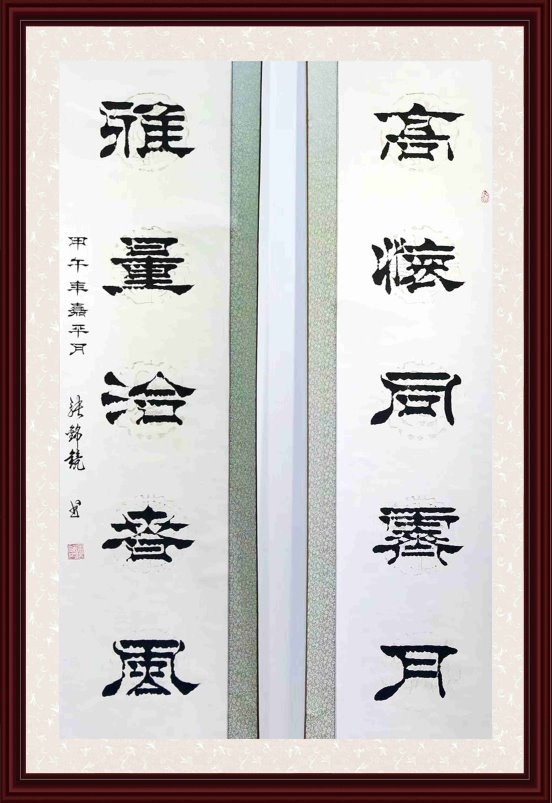 高懷同霽月
雅量洽春風
甲午年嘉平月
張錦鏡